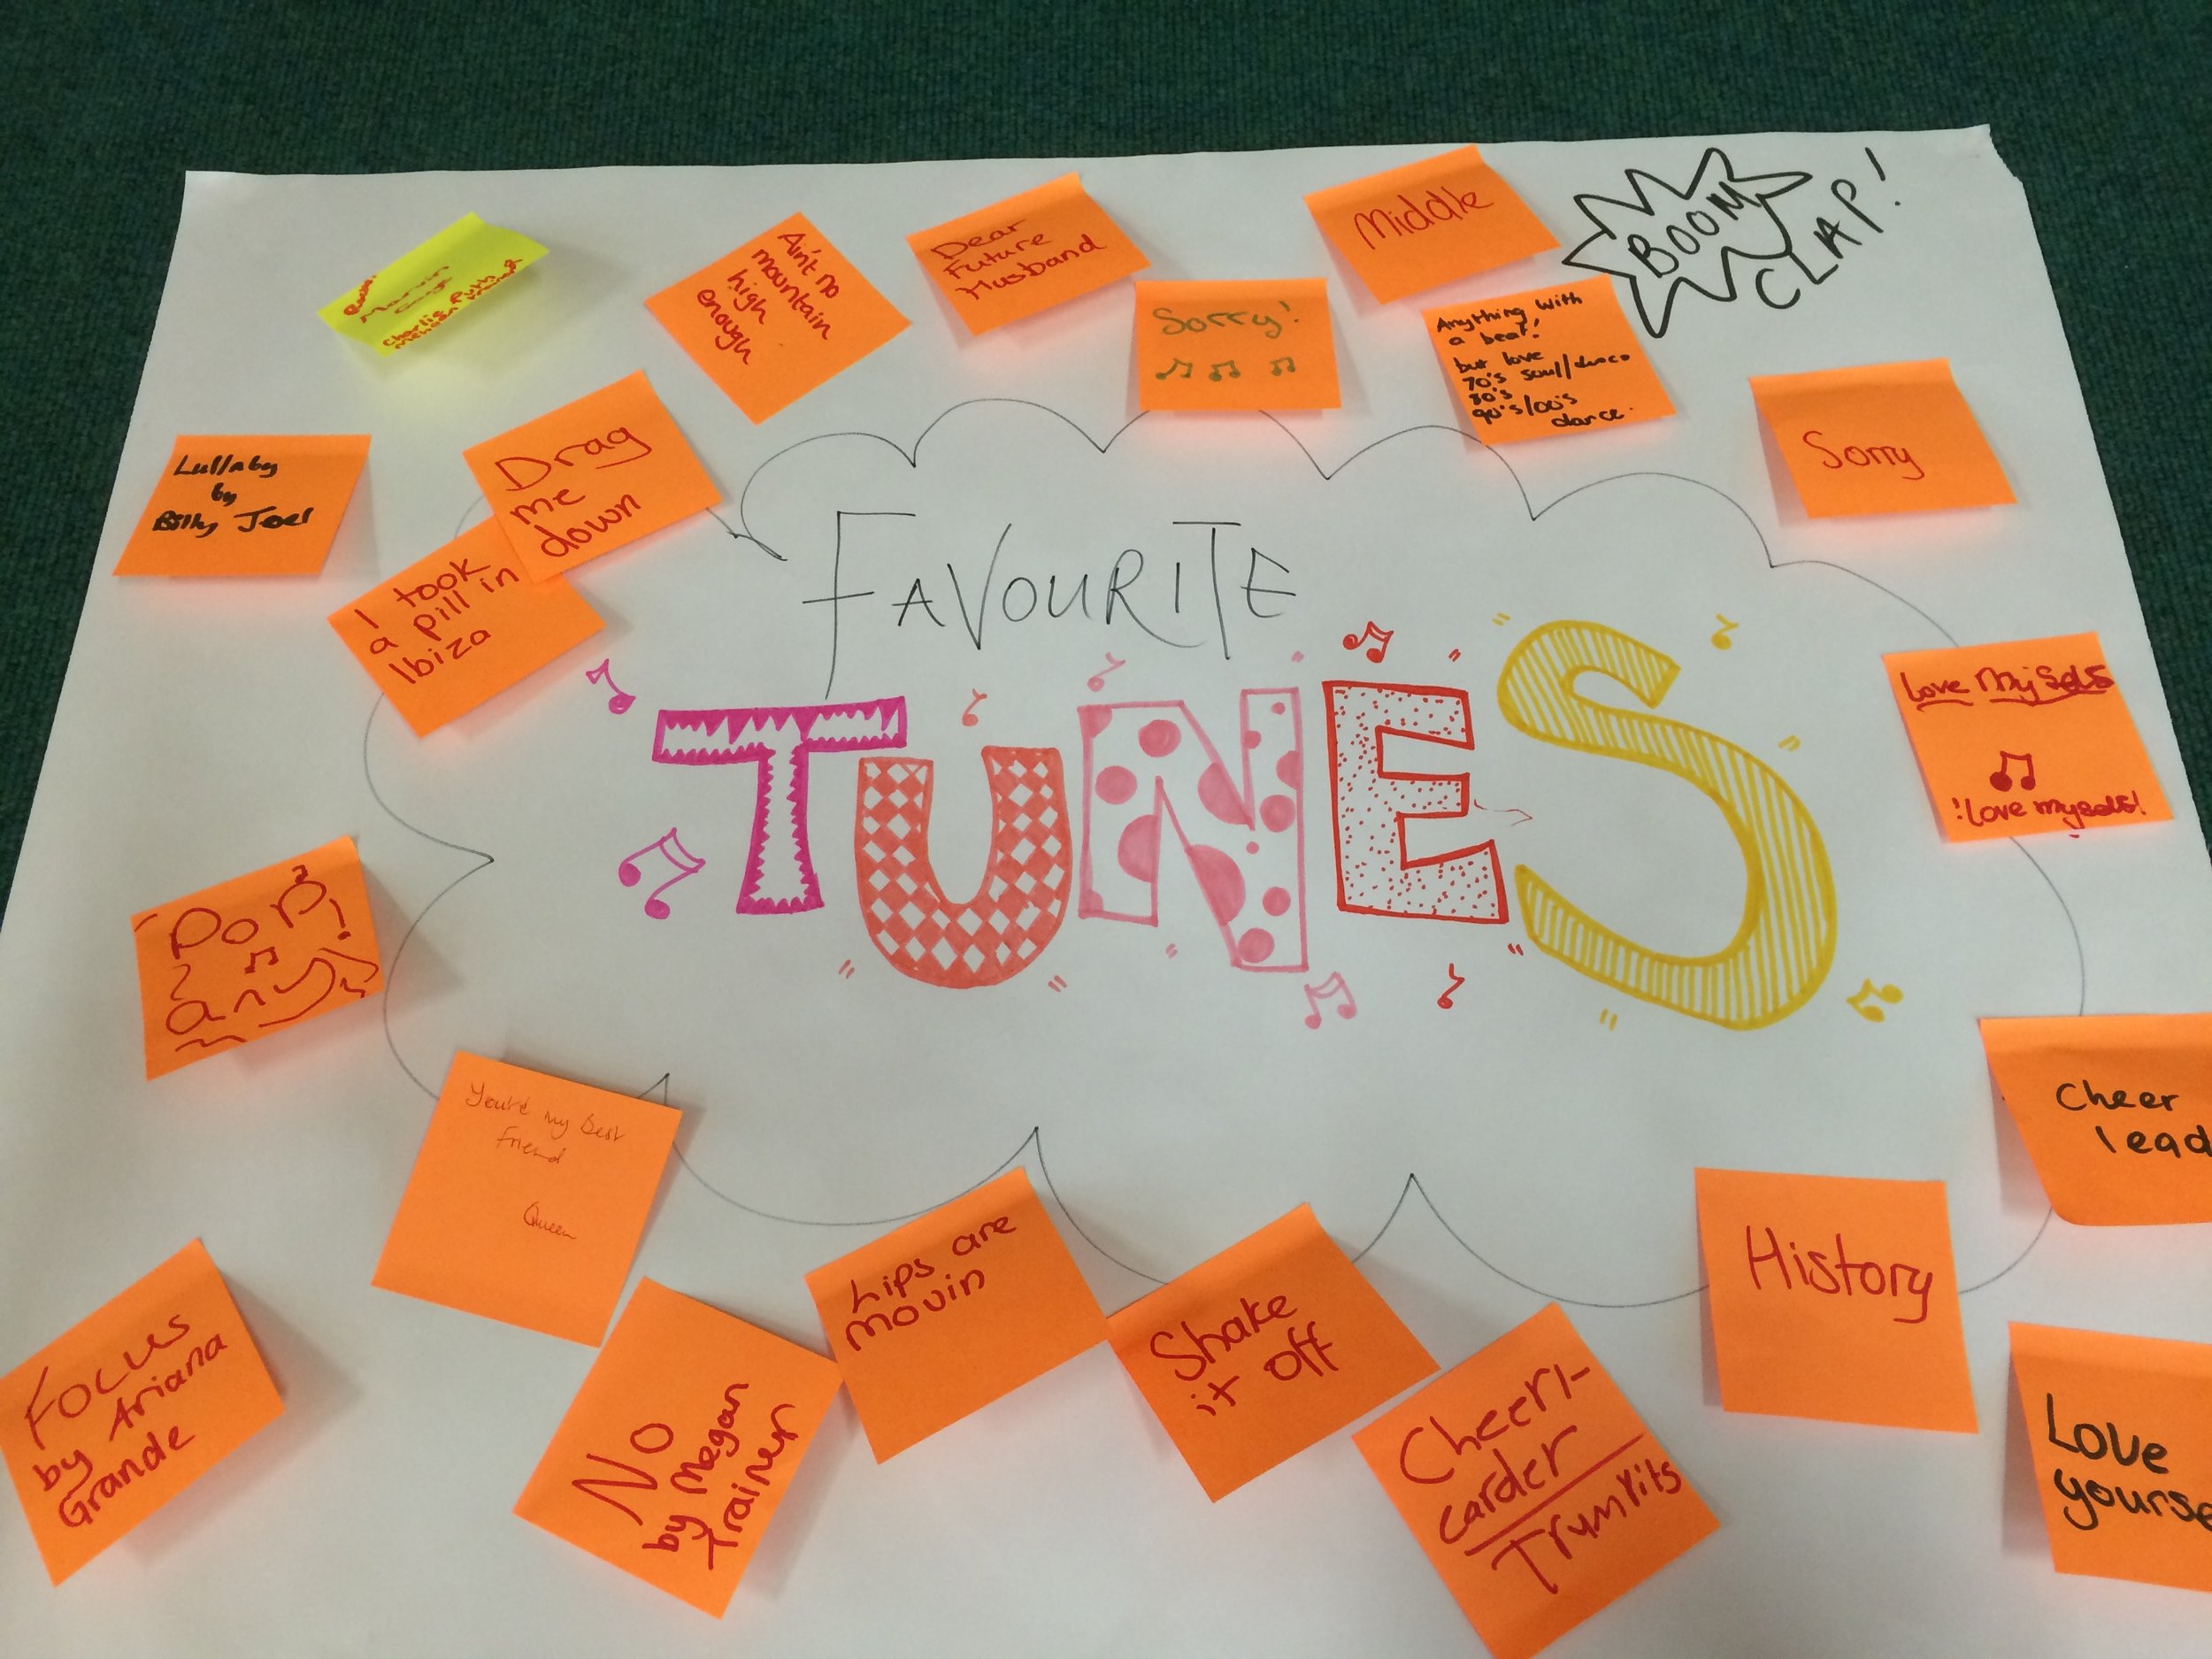 BOOM
CLAP!
Middle
Dear
Future
Husband
Ain't no
mountain
high
enough
Marvin
Gaye
Charlie Puth
Sorry!
Anything with
a beat!
but love
70's soul/disco
80's
90's/00's
dance.
Sorry
Drag
me
down
Lullaby
by
Billy Joel
I took
a pill in
Ibiza
FAVOURITE
TUNES
Love Myself
I love myself!
Pop!
any
You're my best
friend
Queen
Cheer
lead
History
Lips are
movin
Shake
it off
Focus
by Ariana
Grande
No
by Megan
Trainer
Cheerl-
carder
Trumpits
Love
yourse